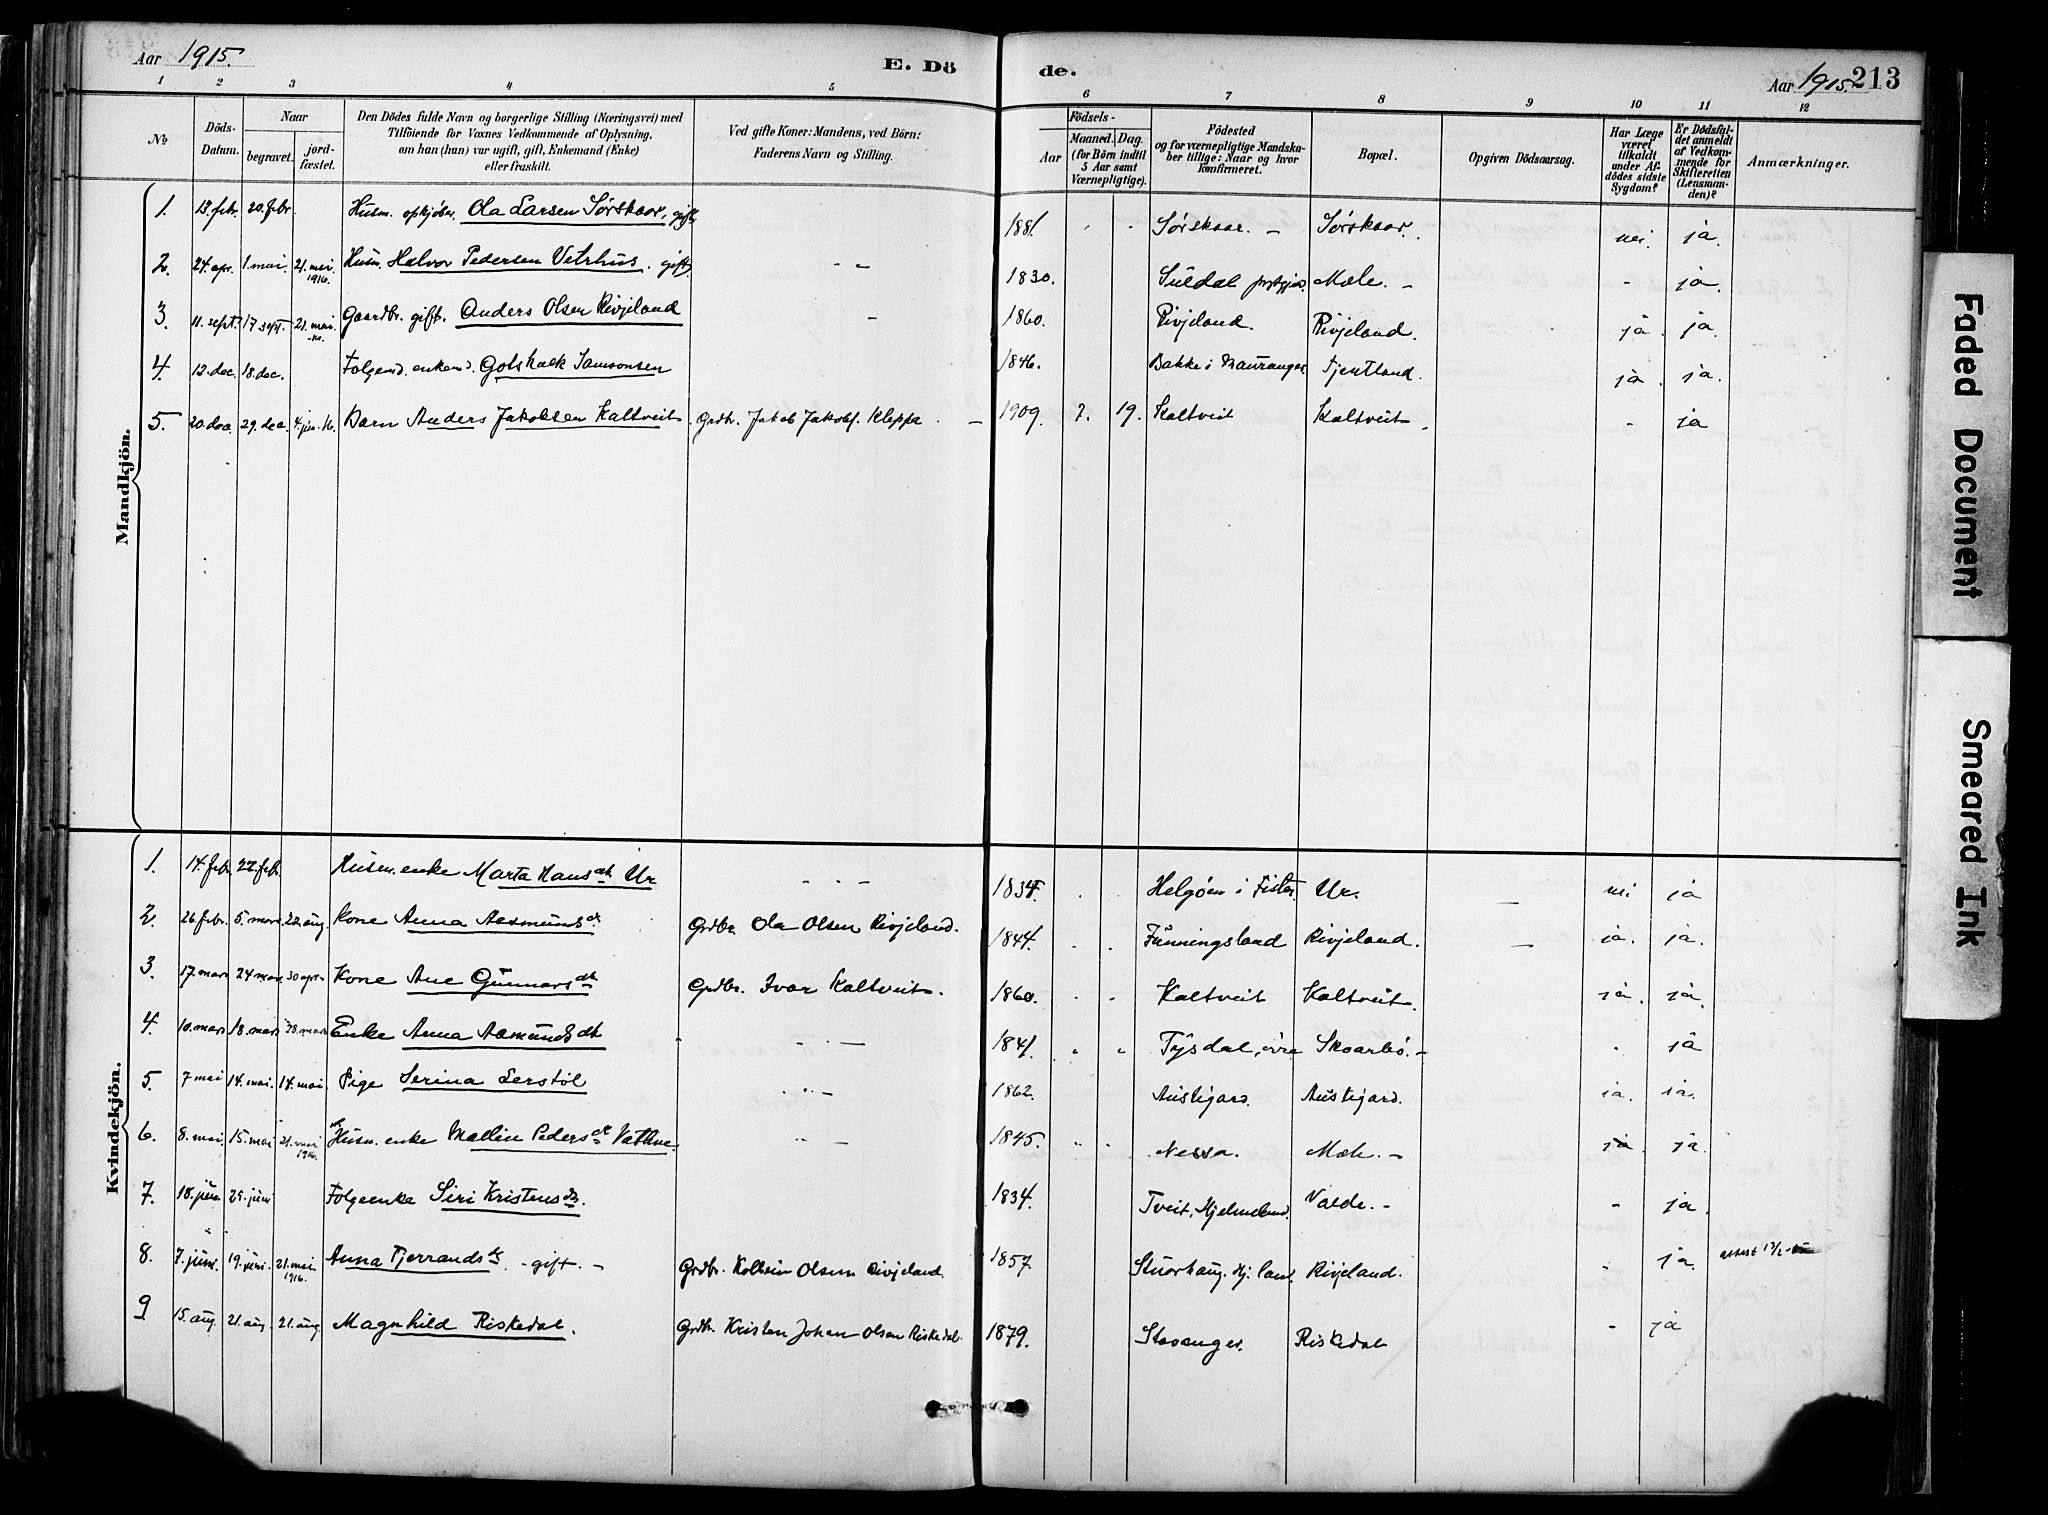 Aar 1915.
E. Döde.
Aar 1915. 213
1 2 3 4 5 6 7 8 9 10 11 12
No
Döds-Datum.
Naar
begravet.
jord-fæstet.
Den Dödes fulde Navn og borgerlige Stilling (Næringsvei) med
Tilföiende for Voxnes Vedkommende af Oplysning,
om han (hun) var ugift, gift, Enkemand (Enke)
eller fraskilt.
Ved gifte Koner: Mandens, ved Börn:
Faderens Navn og Stilling.
Födsels-
Aar
Maaned. Dag.
(for Börn indtil
5 Aar samt
Værnepligtige).
Födested
og for værnepligtige Mandska-
ber tillige: Naar og hvor
konfirmeret.
Bopæl.
Opgiven Dödsaarsag.
Har Læge
været
tilkaldt
under Af-
dödes sidste
Sygdom?
Er Dödsfal-
det anmeldt
af Vedkom-
mende for
Skifteretten
(Lensman-
den)?
Anmærkninger.
Mandkjön.
1. 13. febr. 20. febr. Husm. opkjøber. Ola Larsen Sørskaar, gift 1881. Sørskaar. - Sørskaar. nei. ja.
2. 24. apr. 1. mai. 21. mai. 1916. Husm. Halvor Pedersen Vetrhus. gift. - - 1830. Suldal prstgjæld. Mæle. - - ja.
3. 11. sept. 17. sept. 21. mai Gaardbr. gift. Anders Olsen Rivjeland - 1860. Rivjeland. Rivjeland. ja. ja.
4. 12. dec. 18. dec. Folgemd. enkemd. Gotskalk Samsonsen 1846. Bakke i Mauranger. Fjentland. ja. ja.
5. 20. dec. 29. dec. 4. jan. 16. Barn Anders Jakobsen Kaltveit Grdbr. Jakob Jakobs. Kleppa. - 1909. 7. 19. Kaltveit Kaltveit. - ja
Kvindekjön.
1. 14. febr. 22. febr. Husm. enke Marta Hansdt. Ur - - - 1834. Helgøen i Fister. Ur. - nei ja
2. 26. febr. 5. mars 22. aug. Kone Anna Aasmundsdt. Grdbr. Ola Olsen Rivjeland. 1844. Funningsland Rivjeland. - ja. ja.
3. 17. mars 24. mars 30. apr. Kone Ane Gunnarsdt. Grdbr. Ivar Kaltveit. 1860. Kaltveit Kaltveit. ja. ja.
4. 10. mars 18. mars 28. mars Enke Anna Aasmundsdt. - 1841. Tysdal, øvre Skoarbø. - ja
5. 7 mai 14. mai. 14. mai. Pige Serina Lerstøl - 1862. Austigard. Austigard. ja. ja.
6. 8. mai. 15. mai 21. mai 1916. Husm. enke Mallin Pedersdt. Vatthne. - 1845. Nessa. Mæle. - ja ja.
7. 18. juni. 25. juni Folgeenke Siri Kristensdt. 1834. Tveit, Hjelmeland. Valde. - - ja.
8. 7. juni. 19. juni. 21. mai. 1916. Anna Tjerrandsdt. - gift. - Grdbr. Kolbein Olsen Rivjeland. 1857. Stuorhaug. Hj. land. Rivjeland. - ja. attest 13/2
9 15. aug. 21. aug. 21. aug. Magnhild Riskedal. Grdbr. Kristen Johan Olsen Riskedal. 1879. Stavanger. Riskedal - ja
Faded Document
Smeared Ink